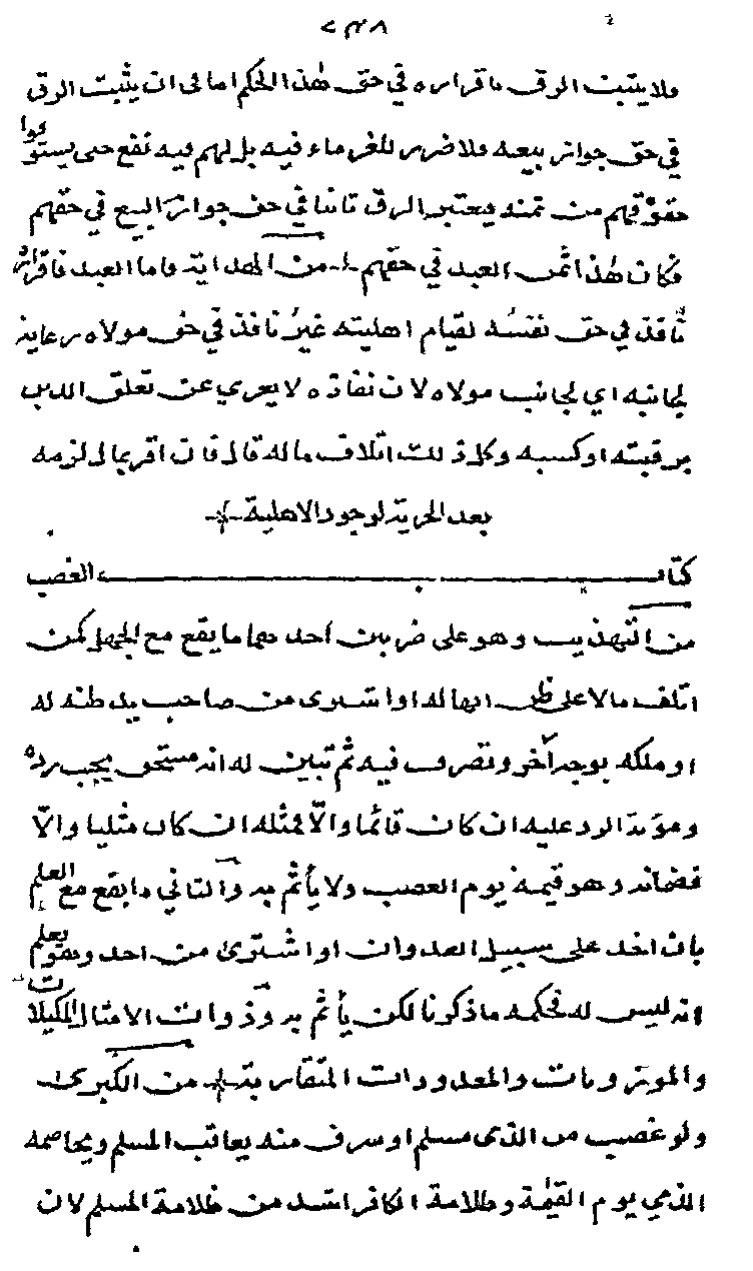 ٧٣٨
فلا يثبت الرق باقراره في حق هذا الحكم اما في ان يثبت الرق
في حق جواز بيعه فلا ضرر للغرماء فيه بل لهم فيه نفع حتى يستوفوا
حقوقهم من ثمنه فيعتبر الرق ثابتا في حق جواز البيع في حقهم
فكان هذا ثمن العبد في حقهم من الهداية فاما العبد فاقراره
نافذ في حق نفسه لقيام اهليته غير نافذ في حق مولاه رعاية
لجانبه اي لجانب مولاه لان نفاذه لا يعرى عن تعلق الدين
برقبته او كسبه وكل ذلك اتلاف ماله قال فان اقر بمال لزمه
بعد الحرية لوجود الاهلية
كتاب الغصب
من التهذيب وهو على ضربين احدهما ما يقع مع الجهل كمن
اتلف مالا على ظن انها له او اشترى من صاحب يد ظنه له
او ملكه بوجه آخر وتصرف فيه ثم تبين له انه مستحق يجب رده
ومؤنة الرد عليه ان كان قائما والّا فمثله ان كان مثليا والّا
فضمانه وهو قيمة يوم الغصب ولا يأثم به والثاني ما يقع مع العلم
بان اخذ على سبيل العدوان او اشترى من احد وهو يعلم
انه ليس له فحكمه ما ذكرنا لكن يأثم به وذوات الامثال المكيلات
والموزونات والمعدودات المتقاربة من الكبرى
ولو غصب من الذمى مسلم او سرق منه يعاقب المسلم ويخاصمه
الذمي يوم القيمة وظلامة الكافر اشد من ظلامة المسلم لان